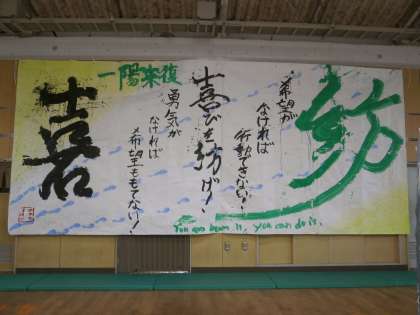 紡
希望が
なければ
行動できない!
喜びを紡げ!
一陽来復
勇気が
なければ
希望ももてない!
喜
You can dream it, you can do it.